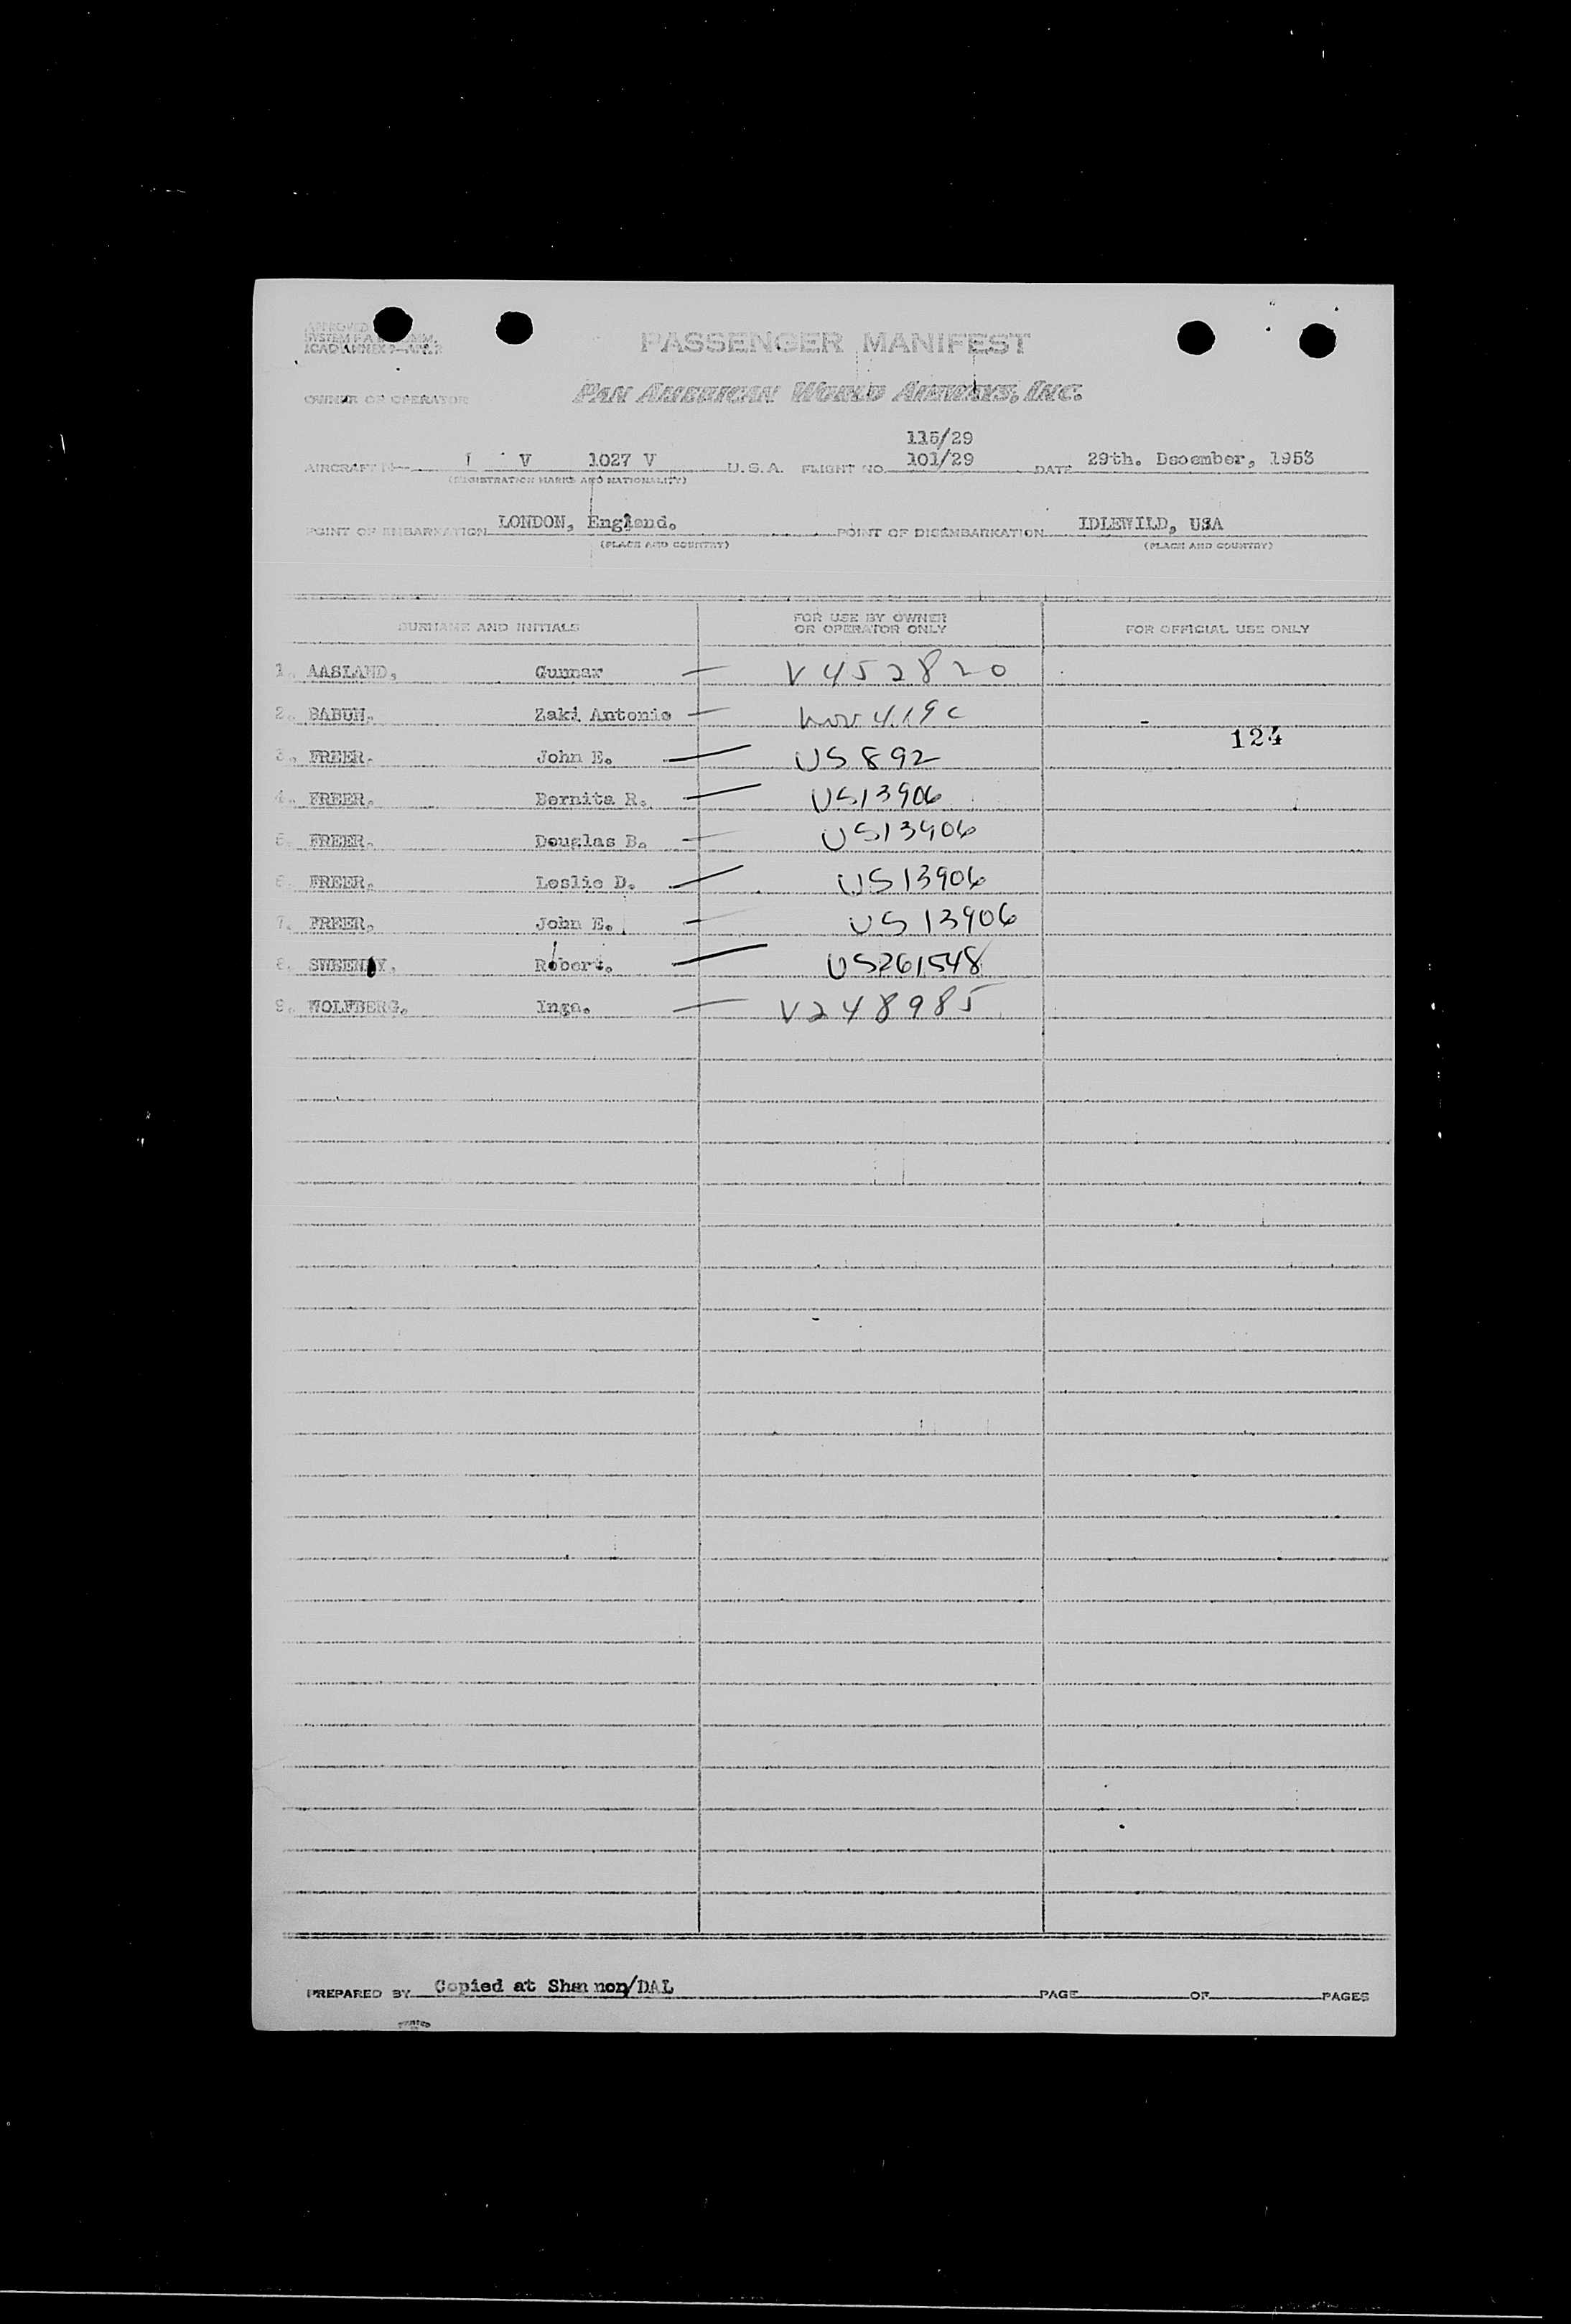 APPROVED
SYSTEM F.A.
ICAO ANNEX 9—APP. 2
PASSENGER MANIFEST
OWNER OR OPERATOR PAN AMERICAN WORLD AIRWAYS, INC.
115/29
AIRCRAFT V 1027 V U.S.A. FLIGHT NO. 101/29 DATE 29th. December, 1953
(REGISTRATION MARKS AND NATIONALITY)
POINT OF EMBARKATION LONDON, England. POINT OF DISEMBARKATION IDLEWILD, USA
(PLACE AND COUNTRY) (PLACE AND COUNTRY)
SURNAME AND INITIALS FOR USE BY OWNER OR OPERATOR ONLY FOR OFFICIAL USE ONLY
1. AASLAND, Gunnar — V452820
2. BABUN, Zaki Antonio —
124
3. FREER. John E. — US 892
4. FREER. Bernita R. — US13906
5. FREER. Douglas B. — US13906
6. FREER. Leslie D. — US13906
7. FREER. John E. — US 13906
8. SWEENEY, Robert. — US261548
9. WOLFBERG. Inga. — V248985
PREPARED BY Copied at Shannon/DAL PAGE OF PAGES
PRINTED